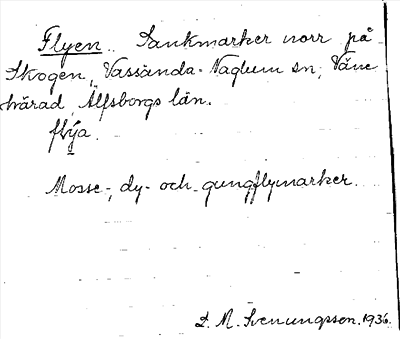 Flyen. Sankmarker norr på
Skogen, Vassända-Naglum sn, Väne
härad, Älfsborgs län.
flýa.
Mosse-, dy- och gungflymarker.
D. M. Svenungsson. 1936.